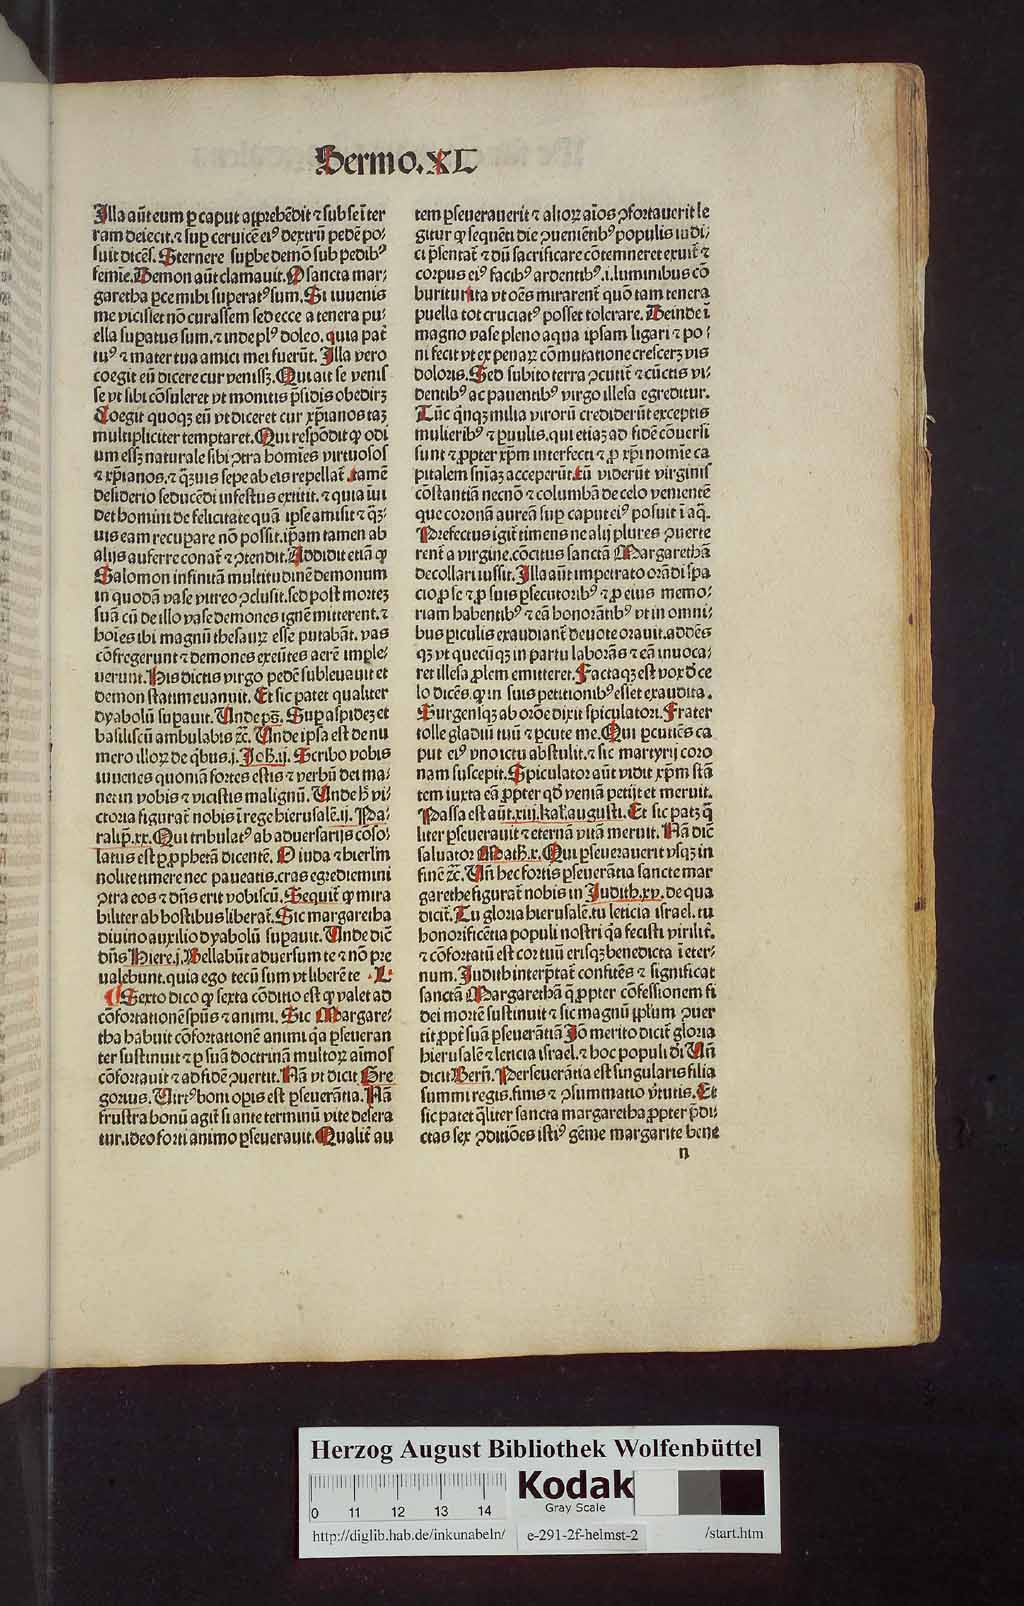 Sermo.XL
Illa aūt eum ꝑ caput apprehēdit ⁊ sub se ī ter
ram deiecit.⁊ suꝑ ceruicē eiꝰ dextrū pedē po⸗
suit dicēs. Sternere suꝑbe demō sub pedibꝰ
femīe. Demon aūt clamauit. O sancta mar⸗
garetha ꝑce mihi superatꝰ sum. Si iuuenis
me vicisset nō curassem sed ecce a tenera pu⸗
ella suꝑatus sum.⁊ inde plꝰ doleo. quia pat̄
tuꝰ ⁊ mater tua amici mei fuerūt. Illa vero
coegit eū dicere cur venissꝫ. Qui ait se venis
se vt sibi cōsuleret vt monitis p̄sidis obedirꝫ
Coegit quoqꝫ eū vt diceret cur xp̄ianos taꝫ
multipliciter temptaret. Qui respōdit ꝙ odi
um essꝫ naturale sibi ꝯtra homīes virtuosos
⁊ xp̄ianos.⁊ q̄ꝫuis sepe ab eis repellat̄. tamē
desiderio seducēdi infestus extitit.⁊ quia īui
det homini de felicitate quā ipse amisit ⁊ q̄ꝫ⸗
uis eam recuꝑare nō possit.ip̄am tamen ab
alijs auferre conat̄ ⁊ ꝯtendit. Addidit etiā ꝙ
Salomon infinitā multitudinē demonum
in quodā vase vitreo ꝯclusit.sed post morteꝫ
suā cū de illo vase demones ignē mitterent.⁊
hoīes ibi magnū thesauꝝ esse putabāt. vas
cōfregerunt ⁊ demones exeūtes aerē imple⸗
uerunt. His dictis virgo pedē subleuauit et
demon statim euanuit. Et sic patet qualiter
dyabolū suꝑauit. Unde ps̄. Suꝑ aspideꝫ et
basiliscū ambulabis ⁊c̄. Unde ipsa est de nu
mero illoꝝ de qͥbus.j. Joh̄.ij. Scribo vobis
iuuenes quoniā fortes estis ⁊ verbū dei ma⸗
net in vobis ⁊ vicistis malignū. Unde h̄ vi⸗
ctoria figurat̄ nobis ī rege hierusalē.ij. Pa⸗
ralip̄.xx. Qui tribulatꝰ ab aduersarijs cōso⸗
latus est ꝑ ꝓphetā dicentē. O iuda ⁊ hierl̄m
nolite timere nec paueatis.cras egrediemini
ꝯtra eos ⁊ dn̄s erit vobiscū. Sequit̄ ꝙ mira
biliter ab hostibus liberat̄. Sic margaretha
diuino auxilio dyabolū suꝑauit. Unde dic̄
dn̄s Hiere.j. Bellabūt aduersum te ⁊ nō pre
ualebunt.quia ego tecū sum vt liberē te .L.
¶ Sexto dico ꝙ sexta cōditio est ꝙ valet ad
cōfortationē spūs ⁊ animi. Sic Margare⸗
tha habuit cōfortationē animi qͥa ꝑseueran
ter sustinuit ⁊ ꝑ suā doctrinā multoꝝ aīmos
cōfortauit ⁊ ad fidē ꝯuertit. Nā vt dicit Gre
gorius. Virtꝰ boni oꝑis est ꝑseuerātia. Nā
frustra bonū agit̄ si ante terminū vite desera
tur.ideo forti animo ꝑseuerauit. Qualit̄ au
tem ꝑseuerauerit ⁊ alioꝝ aīos ꝯfortauerit le
gitur ꝙ sequēti die ꝯueniētibꝰ populis iudi⸗
ci p̄sentat̄ ⁊ dū sacrificare cōtemneret exuit̄ ⁊
corpus eiꝰ facibꝰ ardentibꝰ.i.luminibus cō
buritur ita vt oēs mirarent̄ quō tam tenera
puella tot cruciatꝰ posset tolerare. Deinde ī
magno vase pleno aqua ipsam ligari ⁊ po⸗
ni fecit vt ex penaꝝ cōmutatione cresceꝝ vis
doloris. Sed subito terra ꝯcutit̄ ⁊ cūctis vi⸗
dentibꝰ ac pauentibꝰ virgo illesa egreditur.
Tūc qͥnqꝫ milia virorū crediderūt exceptis
mulieribꝰ ⁊ ꝑuulis.qui etiaꝫ ad fidē cōuersi
sunt ⁊ ꝓpter xp̄m interfecti ⁊ ꝓ xp̄i nomīe ca
pitalem sn̄iaꝫ acceperūt. Tū viderūt virginis
cōstantiā necnō ⁊ columbā de celo venientē
que coronā aureā suꝑ caput eiꝰ posuit ī aq̄.
Prefectus igit̄ timens ne alij plures ꝯuerte
rent̄ a virgine.cōcitus sanctā Margarethā
decollari iussit. Illa aūt impetrato orādi spa
cio ꝓ se ⁊ ꝓ suis ꝑsecutoribꝰ ⁊ ꝓ eius memo⸗
riam habentibꝰ ⁊ eā honorātibꝰ vt in omni⸗
bus ꝑiculis exaudiant̄ deuote orauit.addēs
qꝫ vt quecūqꝫ in partu laborās ⁊ eā inuoca⸗
ret illesa ꝓlem emitteret. Factaqꝫ est vox de ce
lo dicēs.ꝙ in suis petitionibꝰ esset exaudita.
Surgensqꝫ ab orōe dixit spiculatori. Frater
tolle gladiū tuū ⁊ ꝑcute me. Qui ꝑcutiēs ca
put eiꝰ vno ictu abstulit.⁊ sic martyrij coro
nam suscepit. Spiculator aūt vidit xp̄m stā
tem iuxta eā ꝓpter qd̄ veniā petijt et meruit.
Passa est aūt.xiij.kal̄.augusti. Et sic patꝫ q̄
liter ꝑseuerauit ⁊ eternā vitā meruit. Nā dic̄
saluator Math̄.x. Qui ꝑseuerauerit vsqꝫ in
finē ⁊c̄. Un̄ hec fortis ꝑseuerātia sancte mar
garethe figurat̄ nobis in Judith.xv. de qua
dicit̄. Tu gloria hierusalē.tu leticia israel. tu
honorificētia populi nostri qͥa fecisti virilit̄.
⁊ cōfortatū est cor tuū erisqꝫ benedicta ī eter⸗
num. Judith interp̄tat̄ confitēs ⁊ significat
sanctā Margarethā q̄ ꝓpter cōfessionem fi
dei mortē sustinuit ⁊ sic magnū ip̄lum ꝯuer
tit ꝓpt̄ suā ꝑseuerātiā Jō merito dicit̄ gloria
hierusalē ⁊ leticia israel.⁊ hoc populi dī Un̄
dicit Bern̄. Perseuerātia est singularis filia
summi regis.finis ⁊ ꝯsummatio v̄tutis. Et
sic patet q̄liter sancta margaretha ꝓpter p̄di⸗
ctas sex ꝯditiōes istiꝰ gēme margarite bene
n
Herzog August Bibliothek Wolfenbüttel
0 11 12 13 14
Kodak
Gray Scale
http://diglib.hab.de/inkunabeln/ e-291-2f-helmst-2 /start.htm